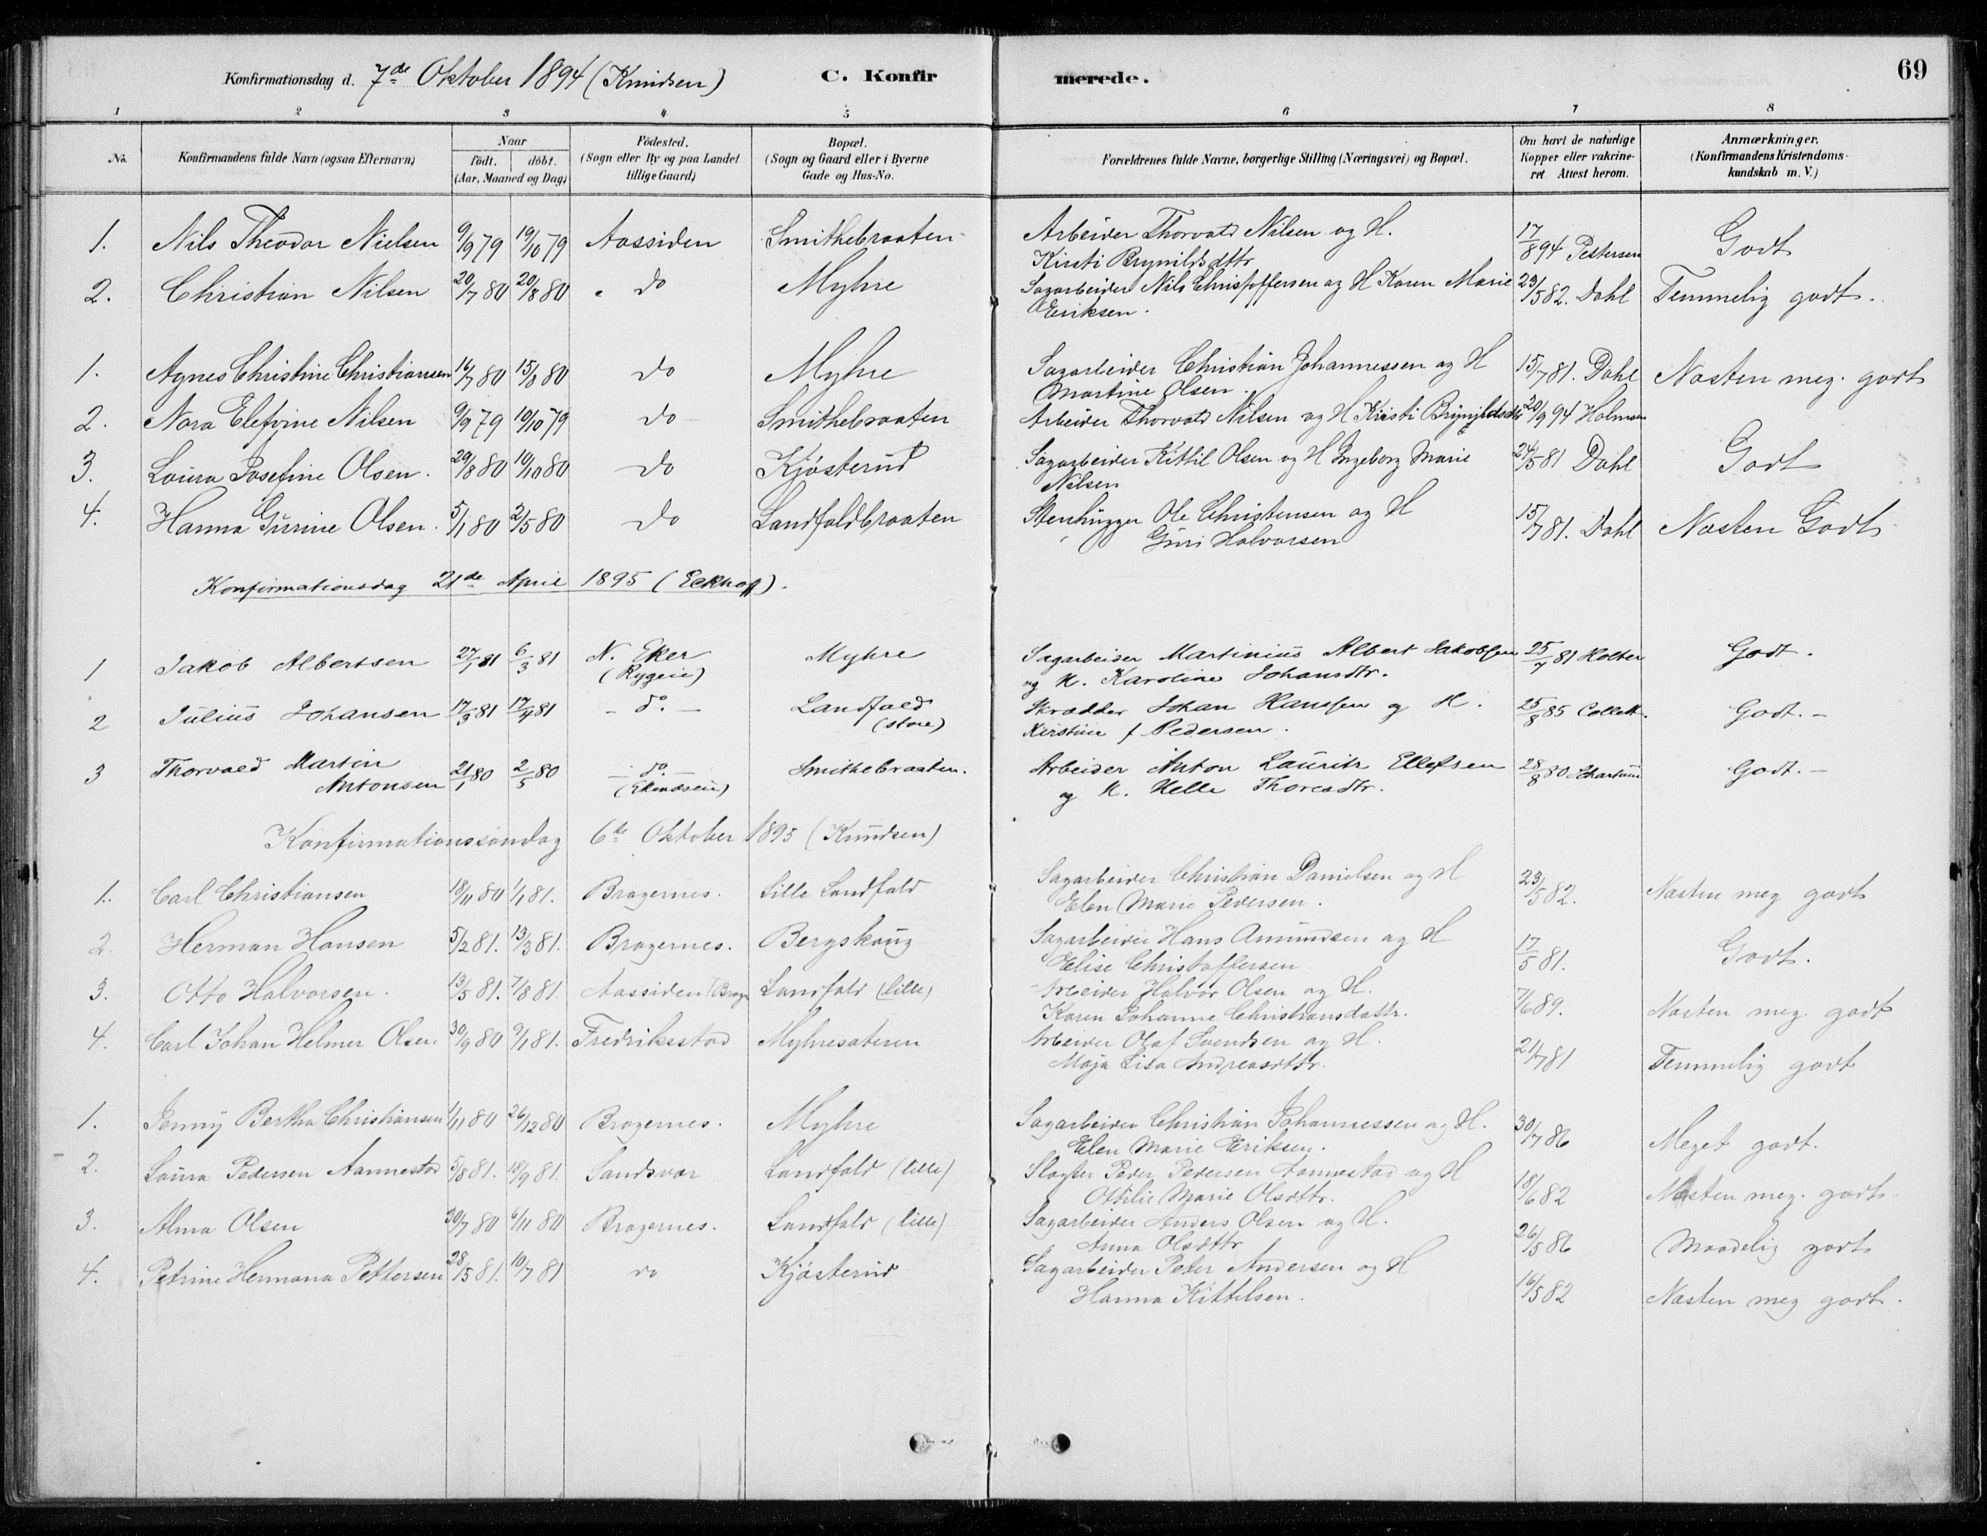 Konfirmationsdag d. 7de Oktober 1894 (Knudsen) C. Konfirmerede. 69
1 2 3 4 5 6 7 8
No. Konfirmandens fulde Navn (ogsaa Efternavn) Naar födt. döbt. (Aar, Maaned og Dag) Födested. (Sogn eller By og paa Landet tillige Gaard) Bopæl. (Sogn og Gaard eller i Byerne Gade og Hus-No. Forældrenes fulde Navne, borgerlige Stilling (Næringsvei) og Bopæl. Om havt de naturlige Kopper eller vakcineret. Attest herom. Anmærkninger. (Konfirmandens Kristendomskundskab m. V.)
1. Nils Theodor Nielsen 9/9 79 19/10 79 Aassiden Smithebraaten Arbeider Thorvald Nilsen og H. 17/8 94 Pettersen Godt
Kirsti Brynildsdttr
2. Christian Nilsen 20/7 80 20/8 80 do Myhre Sagarbeider Nils Christoffersen og H Karen Marie 23/5 82. Dahl Temmelig godt.
Eriksen.
1. Agnes Christine Christiansen 16/7 80 15/8 80 do Myhre Sagarbeider Christian Johannessen og H 15/7 81. Dahl Næsten meg. godt
Martine Olsen
2. Nora Elefine Nilsen 9/9 79 19/10 79 do Smithebraaten Arbeider Thorvald Nilsen og H Kirsti Brynildsdtr 20/9 94 Holmsen
3. Laura Josefine Olsen. 29/8 80 10/10 80 do Kjösterud Sagarbeider Kittil Olsen og H Ingeborg Marie 24/5 81 Dahl Godt
Nilsen
4. Hanna Gurine Olsen. 5/1 80 2/5 80 do Landfaldbraaten Stenhugger Ole Christensen og H 15/7 81. Dahl Næsten Godt
Guri Halvorsen
Konfirmationsdag 21de April 1895 (Eckhoff).
1 Jakob Albertsen 27/1 81 6/3 81 N. Eker Myhre Sagarbeider Martinius Albert Jakobsen 25/7 81 Holter Godt.
(Rygeie) og H. Karoline Johansdtr.
2 Julius Johansen 17/3 81 17/4 81 – do. – Landfald Skrædder Johan Hanssen og H. 25/8 85 Collett. Godt. –
(store) Kirstine f Pedersen.
3 Thorvald Martin 21/1 80 2/5 80 – do. – Smithebraaten. Arbeider Anton Laurits Ellefsen 28/8 80 Godt. –
Antonsen og H. Helle Thoresdtr.
Konfirmationssöndag 6te Oktober 1895 (Knudsen)
1. Carl Christiansen 18/11 80 1/1 81. Bragernes. Lille Landfald Sagarbeider Christian Danielsen og H 23/5 82. Næsten meg godt
Elen Marie Pedersen.
2. Herman Hansen 5/2 81. 13/3 81. Bragernes. Bergskaug Sagarbeider Hans Amundsen og H 17/5 81. Godt.
Elise Christoffersen
3. Otto Halvorsen. 13/5 81. 7/8 81. Aassiden (Brage Landfald (lille) Arbeider Halvor Olsen og H. 7/6 89. Næsten meg. godt
Karen Johanne Christiansdattr.
4. Carl Johan Helmer Olsen 30/9 80 9/1 81. Fredriksstad Myhresæteren Arbeider Olaf Svendsen og H. 21/7 81 Temmelig godt
Maja Lisa Andreasdttr.
1. Jenny Bertha Christiansen 1/11 80 26/12 80 Bragernes. Myhre Sagarbeider Christian Johannessen og H. 30/7 86 Meget godt.
Elen Marie Eriksen.
2. Laura Pedersen Aannestad 5/8 81. 18/9 81. Sandsvær Landfald (lille) Slagter Peder Pedersen Aannestad og H 18/6 82 Næsten meg. godt.
Othilie Marie Olsdttr.
3. Alma Olsen 30/7 80 6/11 80 Bragernes. Landfald (lille) Sagarbeider Anders Olsen og H. 26/5 86 Maadelig godt
Anna Olsdttr
4. Petrine Hermana Pettersen 28/5 81. 10/7 81 do Kjösterud Sagarbeider Peter Andersen og H 16/5 82 Næsten meg godt.
Hanna Kittelsen.